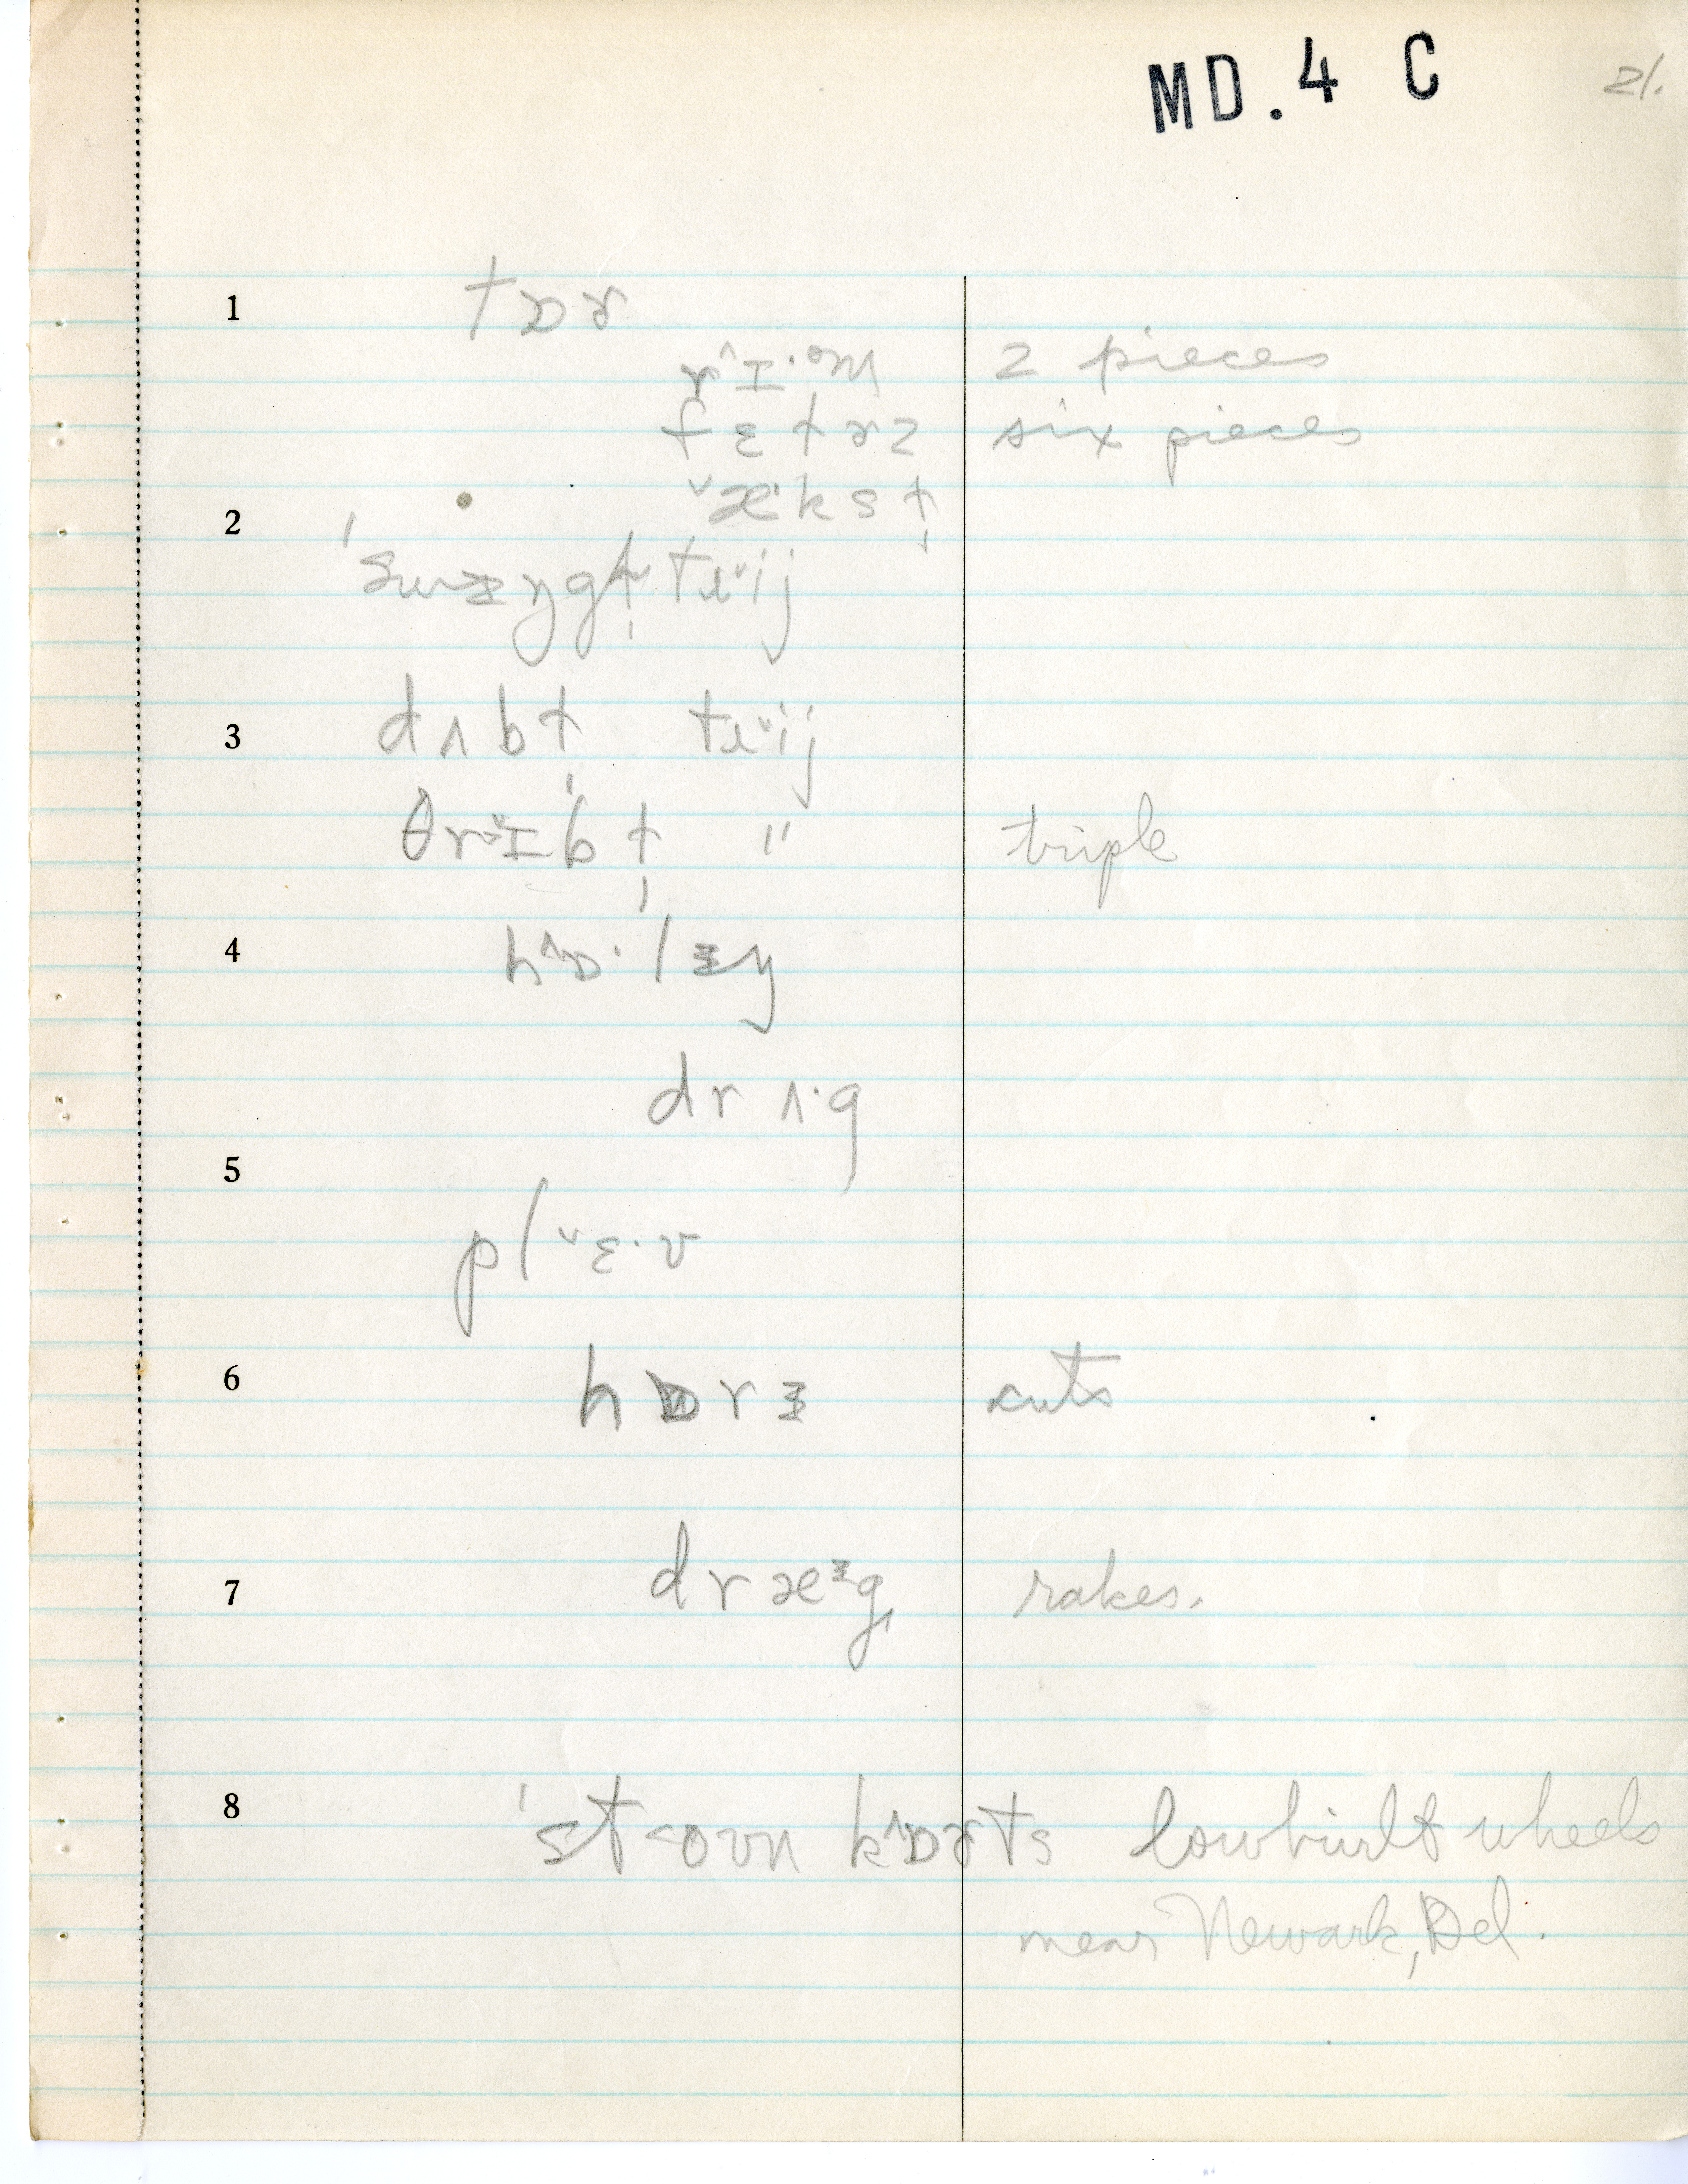 MD.4 C 21.
1 tɒɚ
r^ɪ·əm 2 pieces
fɛtɚz six pieces
2 ˇæ·ksɫ̩
'swɨŋgɫ̩ trˇij
3 dʌbɫ̩ trˇij
θrˇɪbɫ̩ " triple
4 h^ɒ·lɨŋ
drʌ·g
5 plˇɛ·v
6 hɒrɨ cuts
7 dræᵻg, rakes.
8 'st<oʊn k^ɒɚts lowbuilt wheels
near Newark, Del.